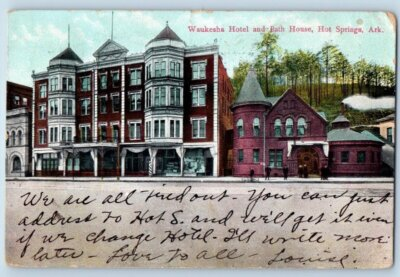 Waukesha Hotel and Bath House, Hot Springs, Ark.
We are all tired out. You can just
address to Hot S. and will get it even
if we change Hotel. Ill write more
later - Love to all Louise.